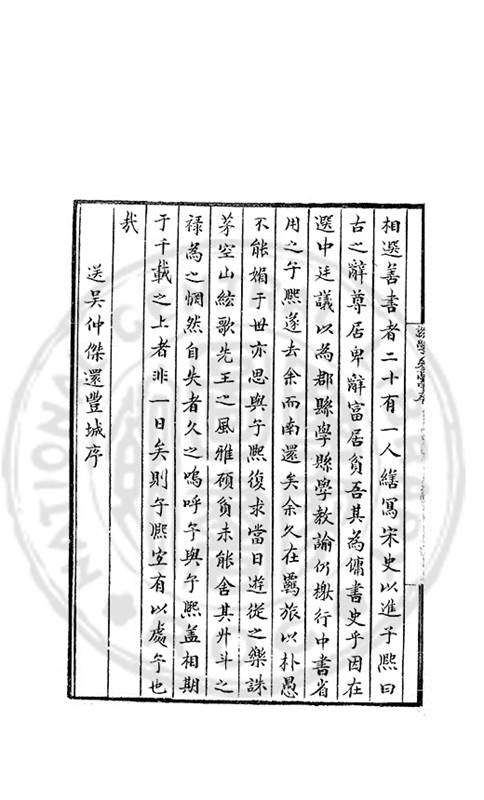 相選善書者二十有一人繕寫宋史以進子熙曰
古之辭尊居卑辭富居貧吾其為傭書史乎因在
選中廷議以為郡縣學縣學教諭仍檄行中書省
用之子熙遂去余而南還矣余久在羈旅以朴愚
不能媚于世亦思與子熙復求當日遊從之樂誅
茅空山絃歌先王之風雅顧貧未能舍其升斗之
祿為之惘然自失者久之嗚呼予與子熙蓋相期
于千載之上者非一日矣則子熙宜有以處予也
哉
送吳仲傑還豐城序